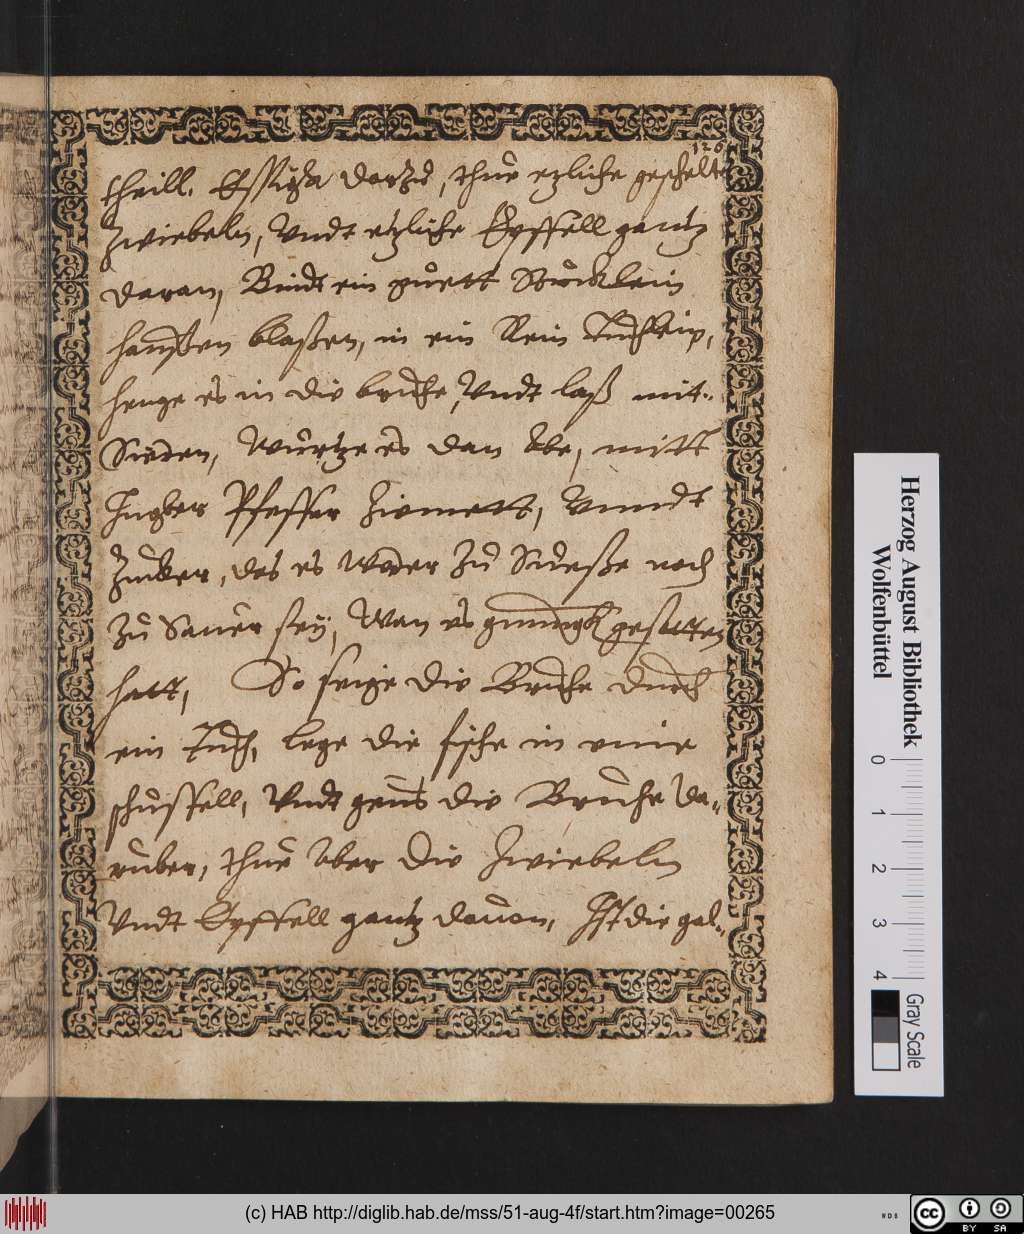 126
theill. Essigß darzu, thue ezliche geschelte
Zwiebeln, Vndt ezliche Epffell gantz
daran, Bindt ein guett Stucklein
haußen blaßen, in ein Rein Tuchlein,
henge es in die bruehe, Vndt laß mit-
Sieden, Wurtze es dan Abe, mitt
Ingber Pfeffer Zimett, Vnndt
Zucker, das es weder Zu Sueße noch
Zu Sauer sey, Wan es genungk gesotten
hatt, So seige die Bruehe durch
ein Tuch, lege die fische in eine
schussell, Vndt geus die Bruehe da-
ruber, thue Aber die Zwiebeln
Vndt Epffell gantz dauon, Ist die gal-
Herzog August Bibliothek
Wolfenbüttel
0
1
2
3
4
Gray Scale
(c) HAB http://diglib.hab.de/mss/51-aug-4f/start.htm?image=00265
WDB
cc
BY SA